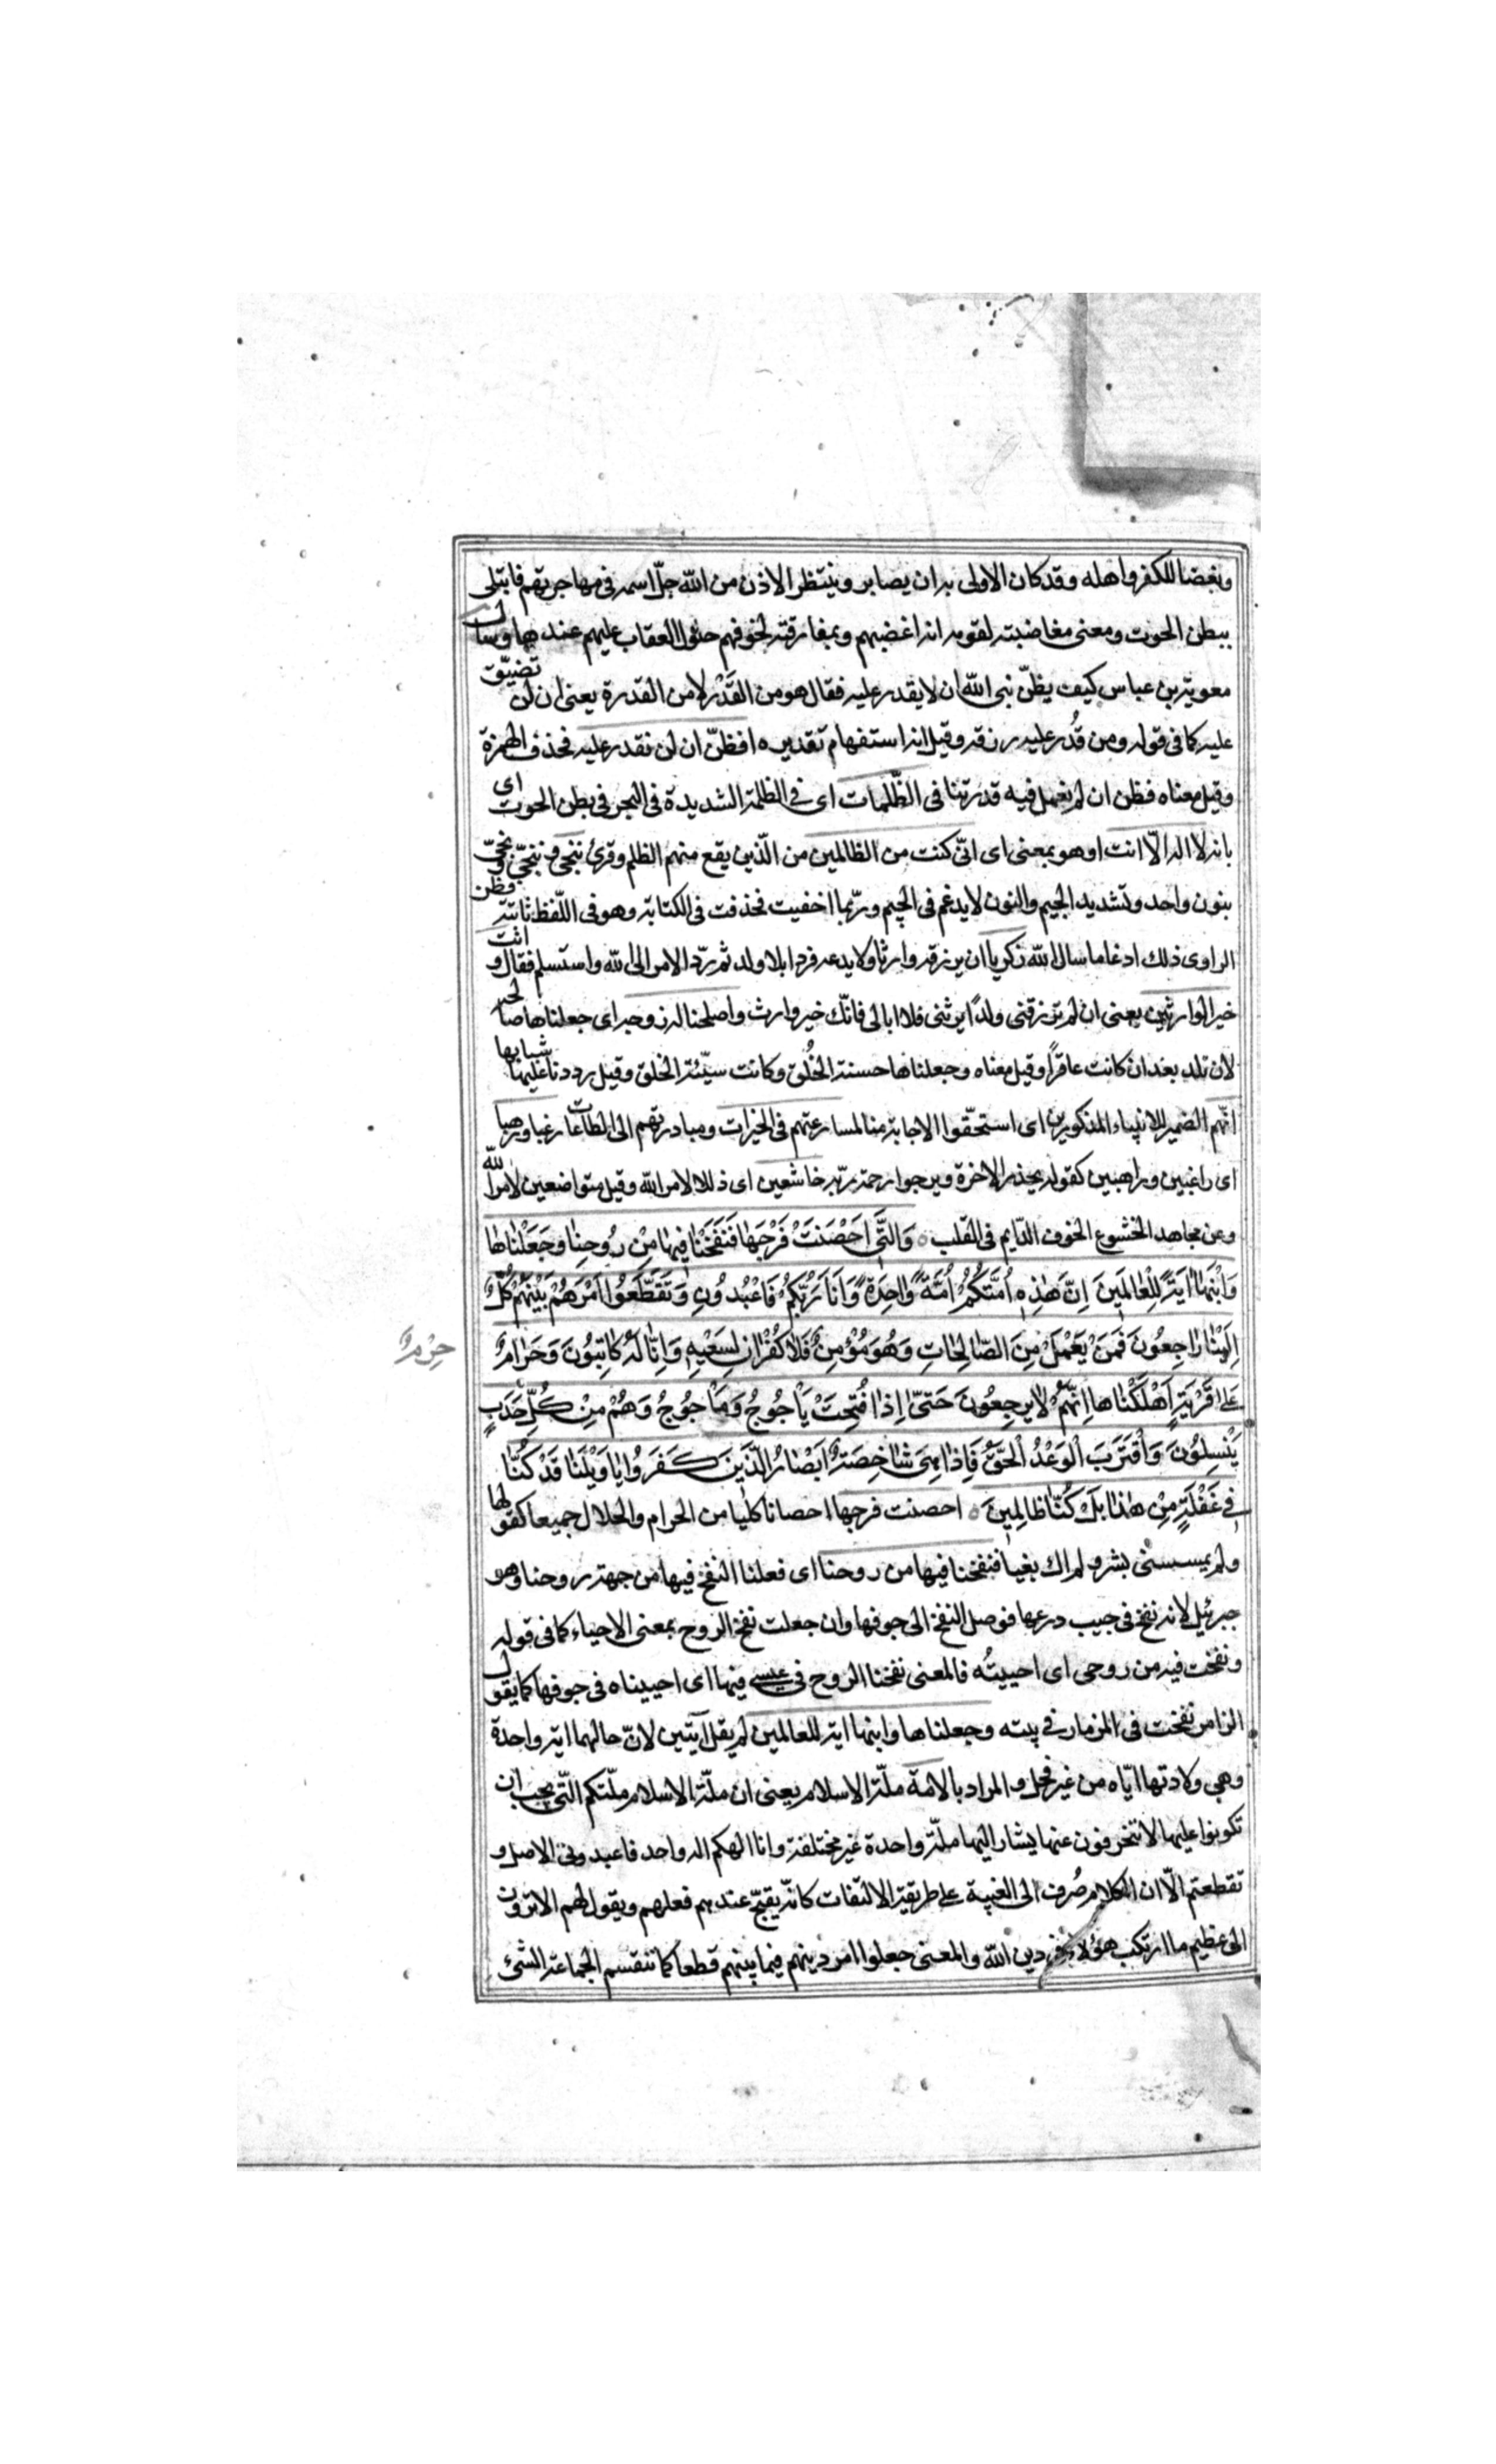 وبغضا للكفر واهله وقد كان الاولى به ان يصابر وينتظر الاذن من الله جلّ اسمه فى مهاجرتهم فابتلى
ببطن الحوت ومعنى مغاضبته لقومه انه اغضبهم وبمفارقته لخوفهم حلول العقاب عليهم عندها وسال
معوية بن عباس كيف يظنّ نبى الله ان لا يقدر عليه فقال هو من القَدْر لا من القدرة يعنى ان لن تضيّق
عليه كما فى قوله ومن قُدر عليه رزقه وقيل انه استفهام تقديره افظنّ ان لن نقدر عليه فحذف الهمزة
وقيل معناه فظن ان لم يعمل فيه قدرتنا فى الظّلمات اى فى الظلمة الشديدة فى البحر فى بطن الحوت اى
بانه لا اله الّا انت او هو بمعنى اى انّى كنت من الظالمين من الّذين يقع منهم الظلم وقرئ ننجى وننجّى ونجّى
بنون واحد وتشديد الجيم والنون لا يدغم فى الجيم وربّما اخفيت فحذفت فى الكتابة وهو فى اللّفظ ثابتة فظن
الراوى ذلك ادغاما سال الله زكريا ان يرزقه وارثا ولا يدعه فردا بلا ولد ثم ردّ الامر الى الله واستسلم فقال وانت
خير الوارثين يعنى ان لم ترزقنى ولدًا يرثنى فلا ابالى فانّك خير وارث واصلحنا له زوجه اى جعلناها صالحه
لان تلد بعد ان كانت عاقرًا وقيل معناه وجعلناها حسنة الخُلق وكانت سيّئة الخلق وقيل رددنا عليها شبابها
انّهم الضمير للانبياء المذكورين اى استحقّوا الاجابة منا لمسارعتهم فى الخيرات ومبادرتهم الى الطاعات رغبا ورهبا
اى راغبين وراهبين كقوله يحذر الاخرة ويرجوا رحمة ربّه خاشعين اى ذللا لامر الله وقيل متواضعين لامر الله
وعن مجاهد الخشوع الخوف الدّايم فى القلب ه وَالَّتى اَحْصَنَتْ فَرْجَهَا فَنَفَخْنَا فِيهَا مِنْ رُوحِنَا وَجَعَلْنَاهَا
وَابْنَهَا ايَةً لِلْعَالَمِينَ اِنَّ هَذِهِ اُمَّتُكُمْ اُمَّةً وَّاحِدَةً وَّاَنَا رَبُّكُمْ فَاعْبُدُونِ وَتَقَطَّعُوا اَمْرَهُمْ بَيْنَهُمْ كُلٌّ
اِلَيْنَا رَاجِعُونَ فَمَنْ يَعْمَلْ مِنَ الصَّالِحَاتِ وَهُوَ مُؤْمِنٌ فَلَا كُفْرَانَ لِسَعْيِهِ وَاِنَّا لَهُ كَاتِبُونَ وَحَرَامٌ
حِرْمٌ
عَلى قَرْيَةٍ اَهْلَكْنَاهَا اِنَّهُمْ لَا يَرجِعُونَ حَتىّ اِذَا فُتِحَتْ يَاْجُوجُ وَمَاْجُوجُ وَهُمْ مِنْ كُلِّ حَدَبٍ
يَنْسِلُونَ وَاقْتَرَبَ الْوَعْدُ الْحَقُّ فَاِذَا هِىَ شَاخِصَةٌ اَبْصَارُ الَّذِينَ كَفَرُوا يَا وَيْلَنَا قَدْ كُنَّا
فِى غَفْلَةٍ مِنْ هَذَا بَلْ كُنَّا ظَالِمِينَ ه احصنت فرجها احصانا كليا من الحرام والحلال جميعا كقولها
ولم يمسسنى بشر ولم اك بغيا فنفخنا فيها من روحنا اى فعلنا النفخ فيها من جهة روحنا وهو
جبرئيل لانه نفخ فى جيب درعها فوصل النفخ الى جوفها وان جعلت نفخ الروح بمعنى الاحياء كما فى قوله
ونفخت فيه من روحى اى احييتُه فالمعنى نفخنا الروح فى عيسى فيها اى احييناه فى جوفها كما يقول
الزامر نفخت فى المزمار فى بيته وجعلناها وابنها اية للعالمين لم يقل آيتين لانّ حالهما اية واحدة
وهى ولادتها ايّاه من غير فحل والمراد بالامة ملّة الاسلام يعنى ان ملّة الاسلام ملّتكم الّتى يجب ان
تكونوا عليها لا تنحرفون عنها يشار اليها ملّة واحدة غير مختلفة وانا الهكم اله واحد فاعبدونى الاصل و
تقطعتم الّا ان الكلام صُرف الى الغيبة على طريقة الالتفات كانّه يقبّح عندهم فعلهم ويقول لهم الا ترون
الى عظيم ما ارتكب هؤلاء فى دين الله والمعنى جعلوا امر دينهم فيما بينهم قطعا كما تنقسم الجماعة الشئ